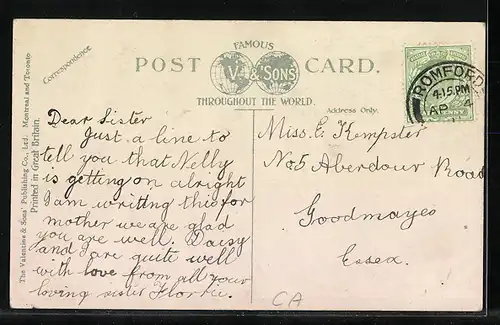 The Valentine & Sons' Publishing Co., Ltd. Montreal and Toronto
Printed in Great Britain.
Correspondence
FAMOUS
POST CARD.
V. & SONS
THROUGHOUT THE WORLD.
Address Only.
ROMFORD
4.15 PM
AP 4
Dear Sister
Just a line to
tell you that Nelly
is getting on alright
I am writing this for
mother we are glad
you are well. Daisy
and I are quite well
with love from all your
loving sister Florrie.
Miss. E Kempster
No 5 Aberdour Road
Goodmayes
Essex.
CA